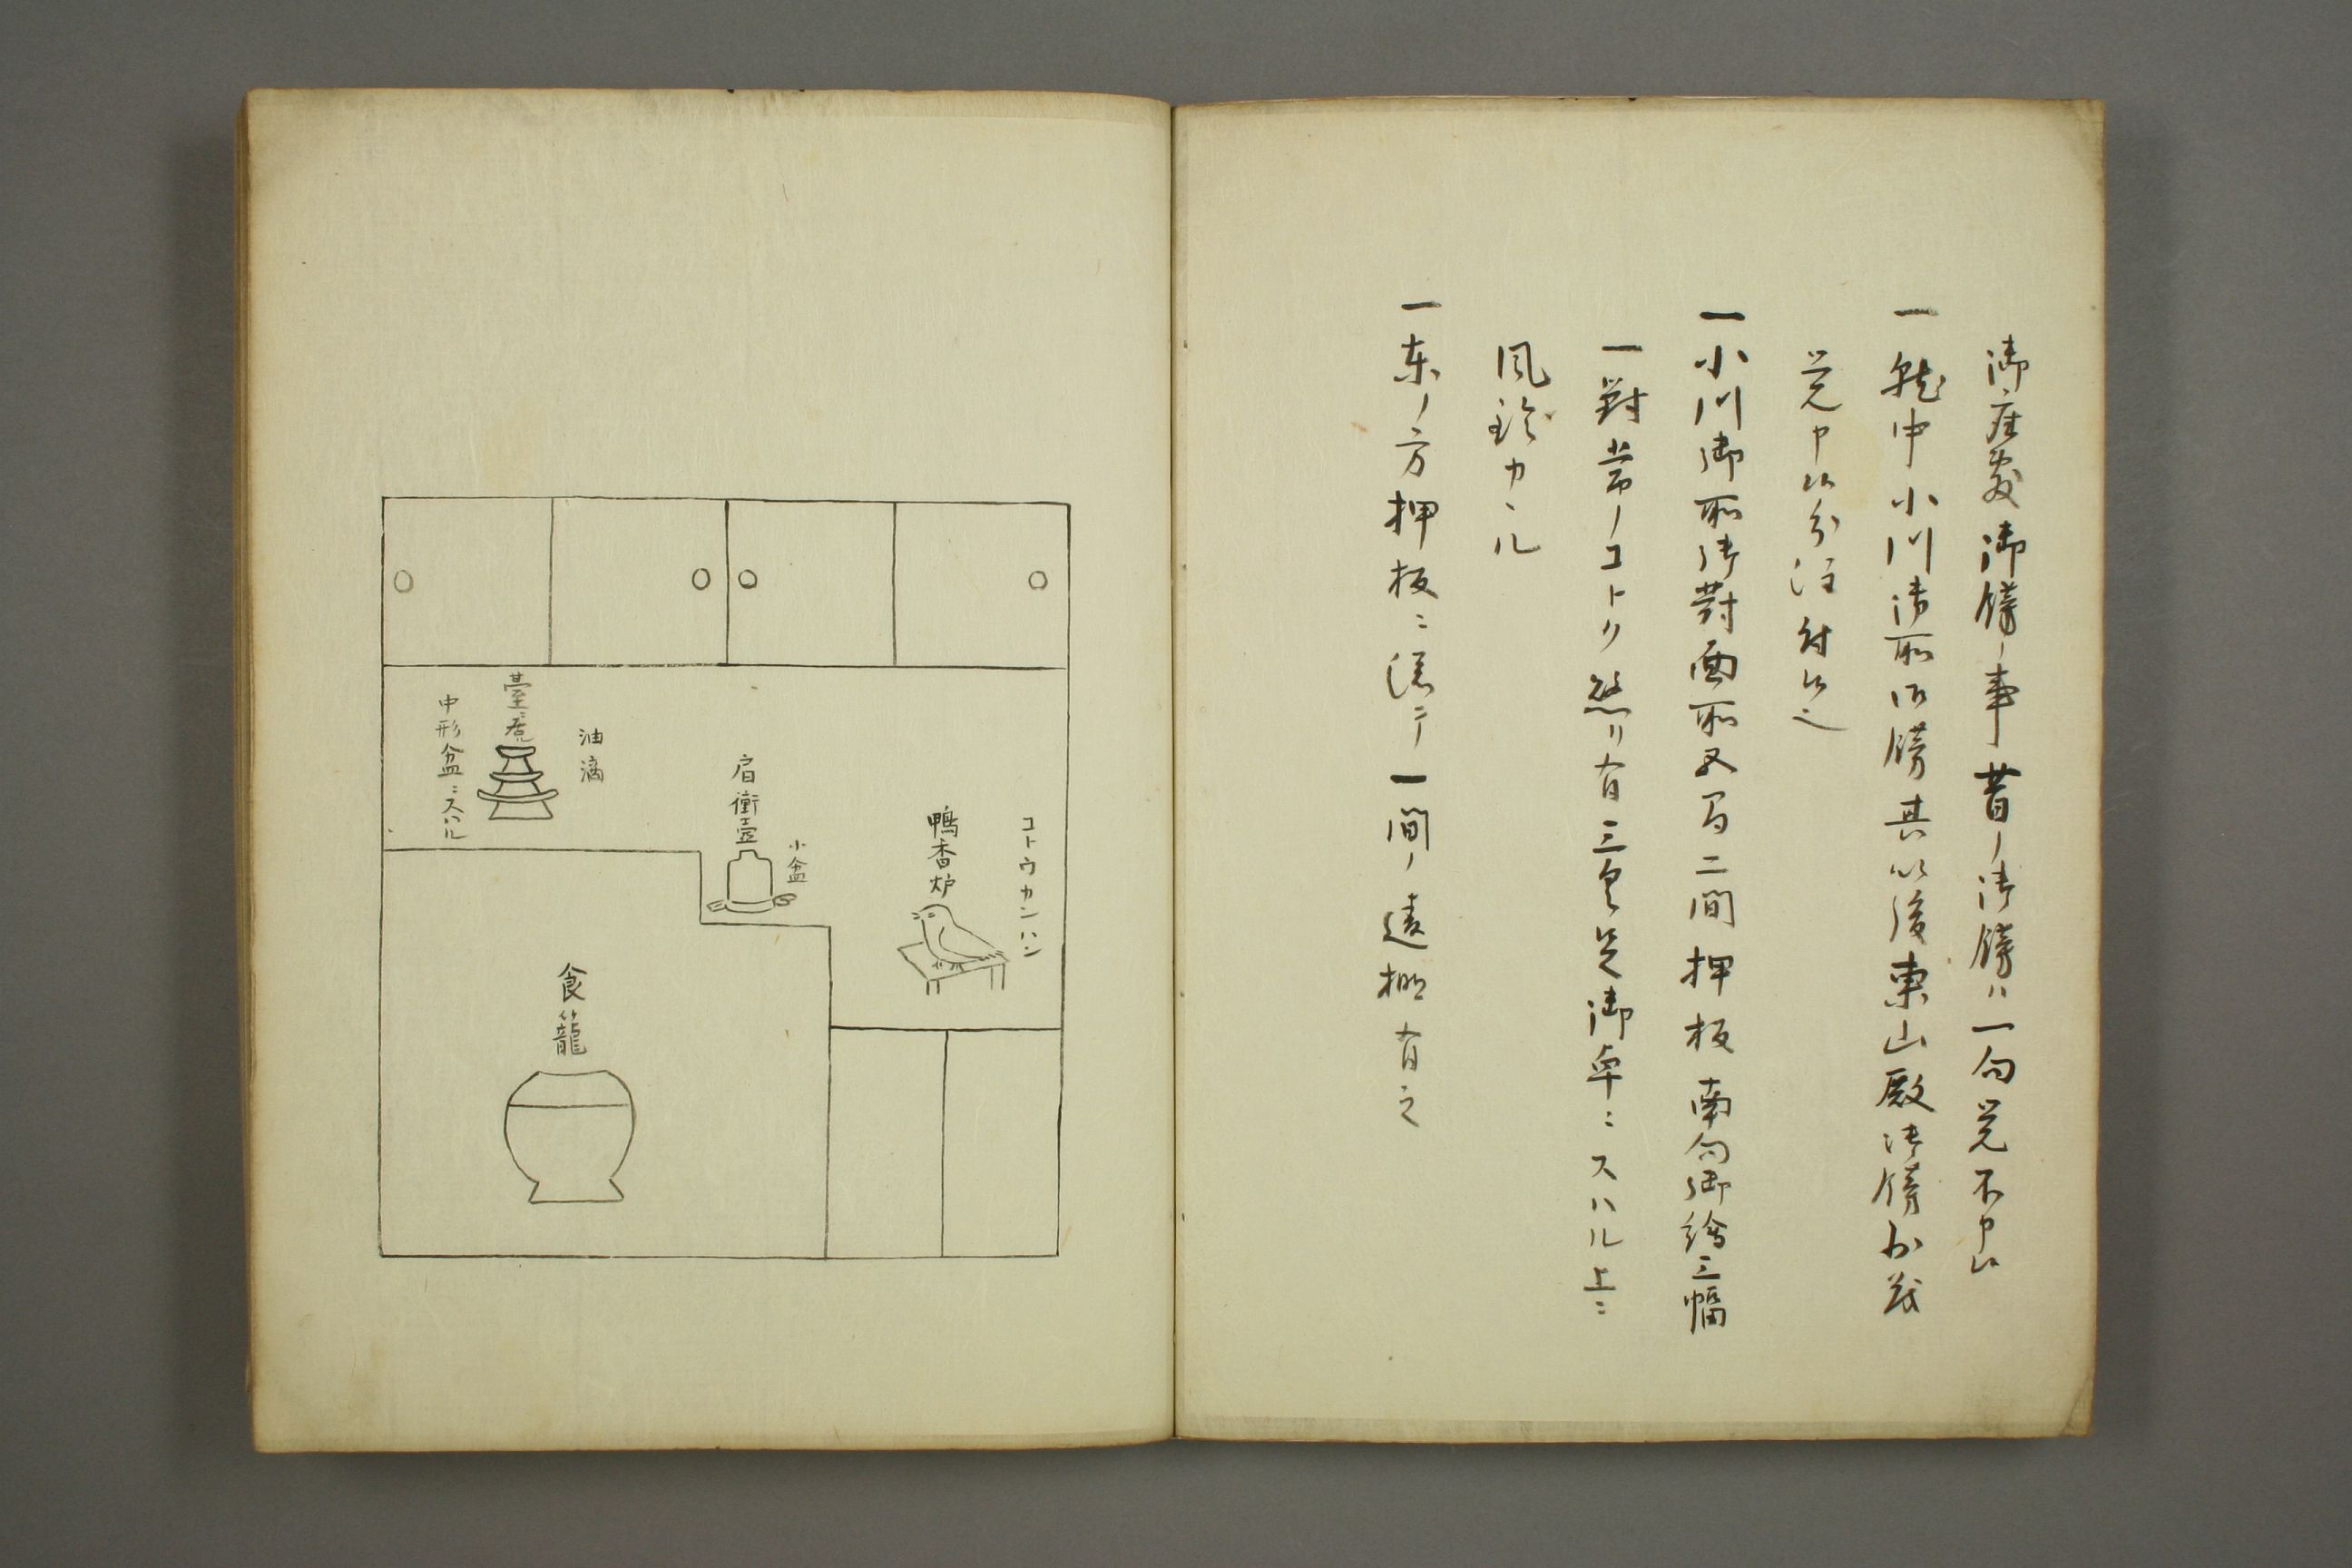 御座敷御餝ノ事昔ノ御餝ハ一向覚不申候
一就中小川御所御餝其以後東山殿御餝少茂
覚申候分注付候之
一小川御所御對面所又间二間押板南向御繪三幅
一對常ノコトク懸リ有三具足御卓ニスハル上ニ
風鈴カヽル
一東ノ方押板ニ濡テ一間ノ違棚有之
コトウカンハン
鴨香炉
小盆
肩衝壺
油滴
臺ニ居
中形盆ニスハル
食籠